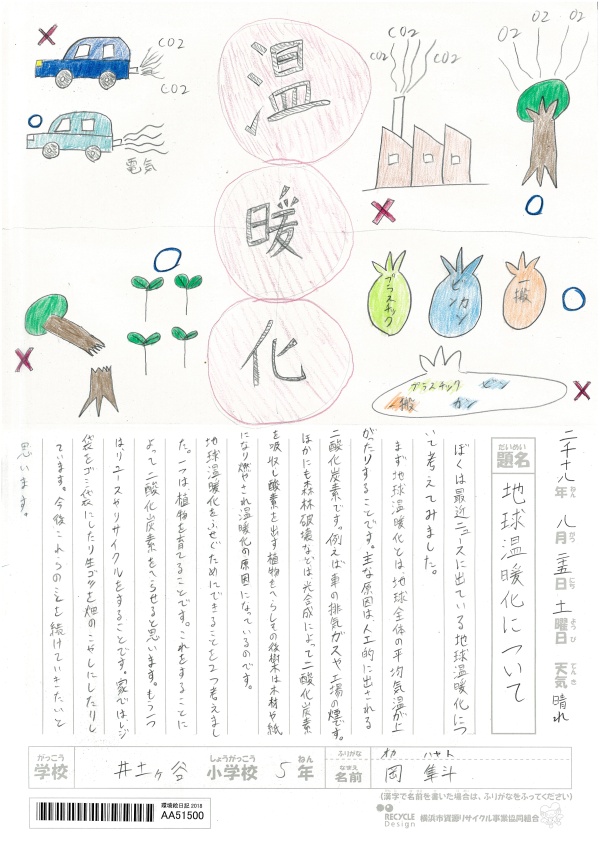 CO2
CO2
電気
温
暖
化
CO2 CO2 CO2
O2 O2 O2
プラスチック
ビン
カン
一搬
プラスチック
ビン
一搬
カン
二千十八年 八月 二十五日 土曜日 天気 晴れ
ねん がつ にち ようび てんき
だいめい
題名
地球温暖化について
ぼくは最近ニュースに出ている地球温暖化につ
いて考えてみました。
まず地球温暖化とは地球全体の平均気温が上
がったりすることです。主な原因は人工的に出される
二酸化炭素です。例えば車の排気ガスや工場の煙です。
ほかにも森林破壊などは光合成によって二酸化炭素
を吸収し酸素を出す植物をへらしその後樹木は木材や紙
になり燃やされ温暖化の原因になっているのです。
地球温暖化をふせぐためにできることを2つ考えまし
た。一つは植物を育てることです。これをすることに
よって二酸化炭素をへらせると思います。もう一つ
はリユースやリサイクルをすることです。家ではレジ
袋をゴミ袋にしたり生ゴミを畑のこやしにしたりし
ています。今後これらのことを続けていきたいと
思います。
がっこう
学校
井土ヶ谷
しょうがっこう
小学校
5
ねん
年
ふりがな
オカ ハヤト
なまえ
名前
岡 隼斗
(漢字で名前を書いた場合は、ふりがなをふってください)
環境絵日記2018
AA51500
RECYCLE
Design
横浜市資源リサイクル事業協同組合